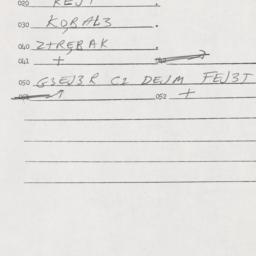 020 REJ1
030 KORAL3
040 Z+RERAK
041 +
050 G3EJ3R C2 DEJM FEJ3T
052 +